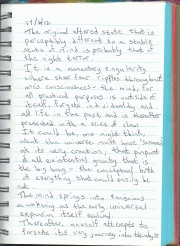 17/9/12
The original altered state that is
perceptibly different to a stable
state of mind is probably that of
the night terror.
It is a momentary singularity
where sheer fear ripples throughout
one's consciousness - the mind, for
all practical purposes is outside of
itself, forgets individuality and
all life in the past, and is thereafter
presented with a slice of chaos.
It could be, one might think,
what the universe must have sensed
at its very creation, that pinpoint
of all existential gravity that is
the big bang - the conceptual birth
of everything that could easily be
not.
The mind springs into
a waking as the early universal
expansion itself
Thereafter, oneself attempts to
its very journey into